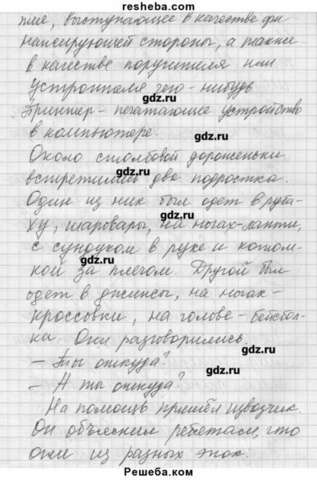 resheba.com
тие, выступающее в качестве фи-
нансирующей стороны, а также
в качестве поручителя или
gdz.ru
устроителя чего-нибудь.
Принтер - печатающее устройство
в компьютере.
gdz.ru
Около столбовой дороженьки
встретились два подростка.
gdz.ru
Один из них был одет в руба-
ху, шаровары, на ногах - лапти,
gdz.ru
с сундуком в руке и котом-
кой за плечом. Другой был
одет в джинсы, на ногах -
gdz.ru
кроссовки, на голове - бейсбол-
ка. Они разговорились.
gdz.ru
- Ты откуда?
- А ты откуда?
gdz.ru
На помощь пришёл изводчик.
Он объяснил ребятам, что
они из разных эпох.
gdz.ru
Решеба.ком